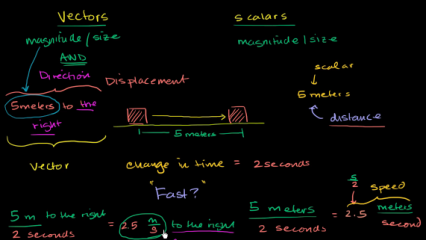 Vectors
magnitude/size
AND
Direction
Displacement
5 meters to the
right
Vector
scalars
magnitude/size
scalar
5 meters
distance
5 meters
change in time = 2 seconds
"Fast?"
5 m to the right
2 seconds
= 2.5 m/s to the right
5 meters
2 seconds
5
2
speed
= 2.5 meters
second